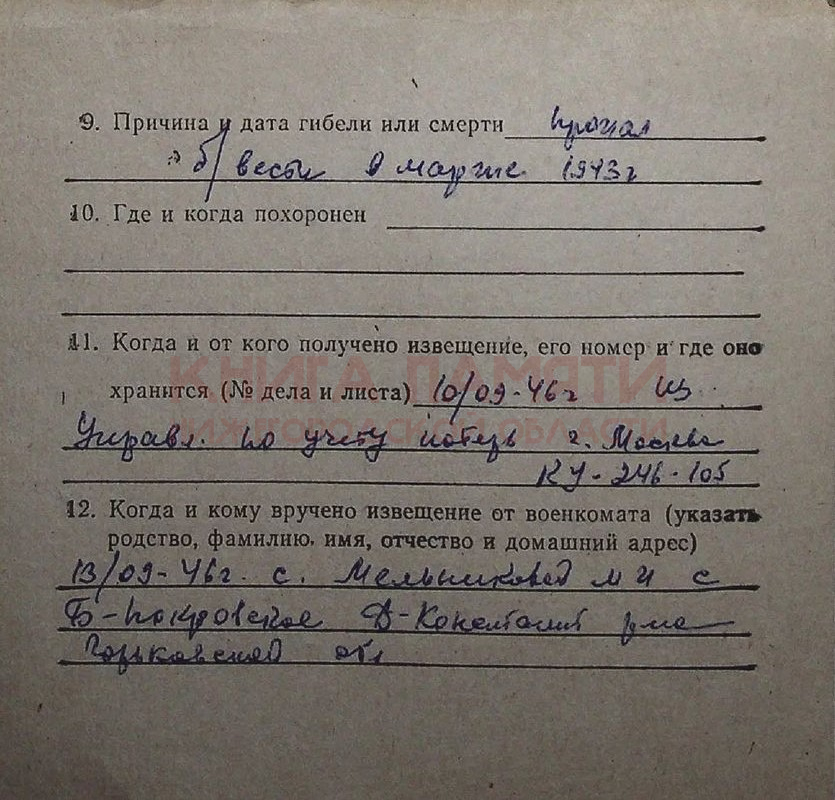 9. Причина и дата гибели или смерти пропал
б/вести в марте 1943г
10. Где и когда похоронен
11. Когда и от кого получено извещение, его номер и где оно
КНИГА ПАМЯТИ
хранится (№ дела и листа) 10/09-46г из
НИЖЕГОРОДСКОЙ ОБЛАСТИ
Управл. по учету потерь г. Москва
КУ-246-105
12. Когда и кому вручено извещение от военкомата (указать
родство, фамилию, имя, отчество и домашний адрес)
13/09-46г. с. Мельниковой М И с
Б-Покровское Д-Констант р-на
Горьковской обл